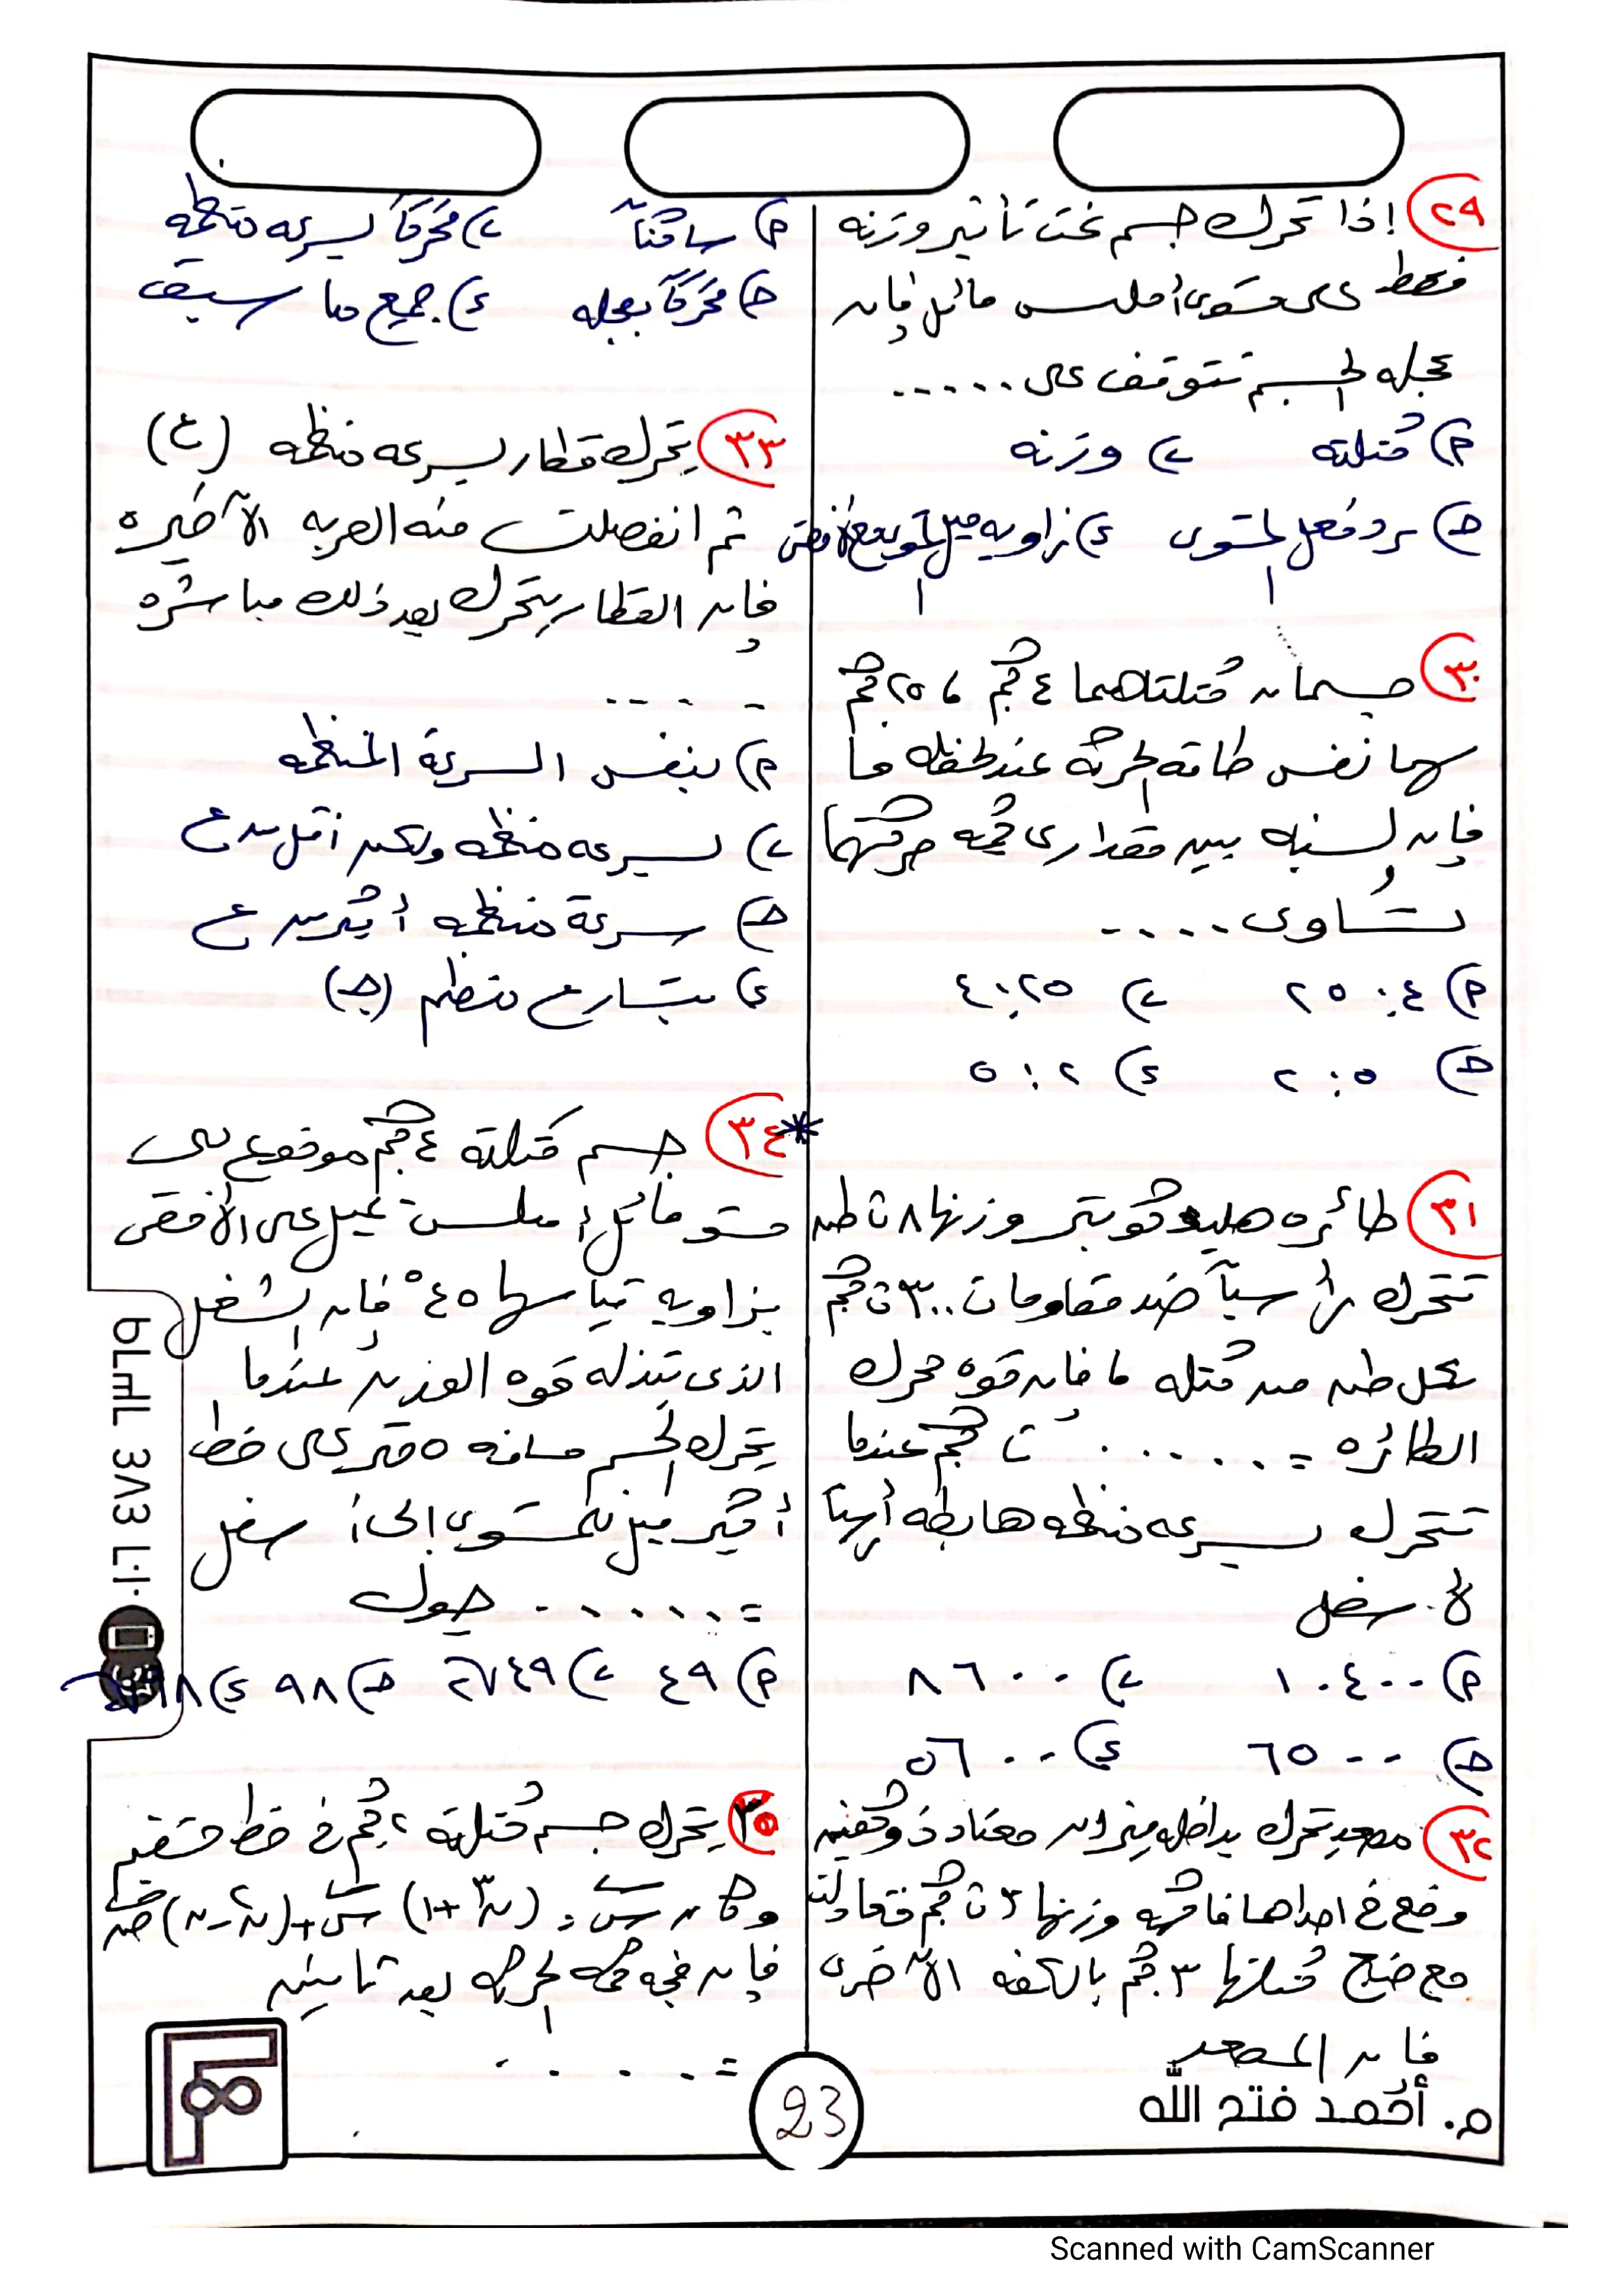 ٢٩ إذا تحرك جسم تحت تأثير وزنه
فقط على مستوى أملس مائل فإن
عجلة الجسم تتوقف على ......
P) كتلته ب) وزنه
ح) رد فعل المستوى د) زاويه ميل المستوى مع الأفقى
٣٠ جسمان كتلتاهما ٤ كجم ، ٢٥ كجم
لهما نفس طاقه الحركة عند لحظه ما
فإن النسبه بين مقدارى كميه حركتهما
تساوى ......
P) ٤ : ٢٥ ب) ٢٥ : ٤
ح) ٥ : ٢ د) ٢ : ٥
٣١ طائره هليوكوبتر وزنها ٨ ث طن
تتحرك رأسياً ضد مقاومات ٣٠٠ ث كجم
لكل طن من كتله ما فإن قوه محرك
الطائره = ...... ث كجم عندما
تتحرك بسرعه منتظمه هابطه رأسياً
لأسفل
P) ١٠٤٠٠ ب) ٨٦٠٠
ح) ٦٥٠٠ د) ٥٦٠٠
٣٢ مصعد يتحرك بداخله ميزان معتاد ذو كفتين
وضع فى احداها فاكهه وزنها ٣ ث كجم فتعادلت
مع صنج كتلتها ٣ كجم بالكفه الآخرى
فإن المصعد
P) ساكناً ب) متحركاً بسرعه منتظمه
ح) متحركاً بعجله د) جميع ما سبق
٣٣ يتحرك قطار بسرعه منتظمه (ع)
ثم انفصلت منه العربه الآخيره
فإن القطار يتحرك بعد ذلك مباشره
......
P) بنفس السرعة المنتظمه
ب) بسرعه منتظمه ولكن أقل من ع
ح) بسرعة منتظمه أكبر من ع
د) بتسارع منتظم (جـ)
*٣٤ جسم كتلته ٤ كجم موضوع على
مستو مائل أملس يميل على الأفقى
بزاويه قياسها ٤٥° فإن الشغل
الذى تبذله قوه الوزن عندما
يتحرك الجسم مسافه ٥ متر على خط
أكبر ميل للمستوى إلى أسفل
= ...... جول
P) ٤٩ ب) ٤٩√٢ ح) ٩٨ د) ٩٨√٢
٣٥ يتحرك جسم كتلته ٢ كجم فى خط مستقيم
وكان س = (ن٣ + ١) س + (ن٢ - ن) ص
فإن متجه كميه الحركه بعد ثانيتين
= ......
م. أحمد فتح الله
23
Scanned with CamScanner